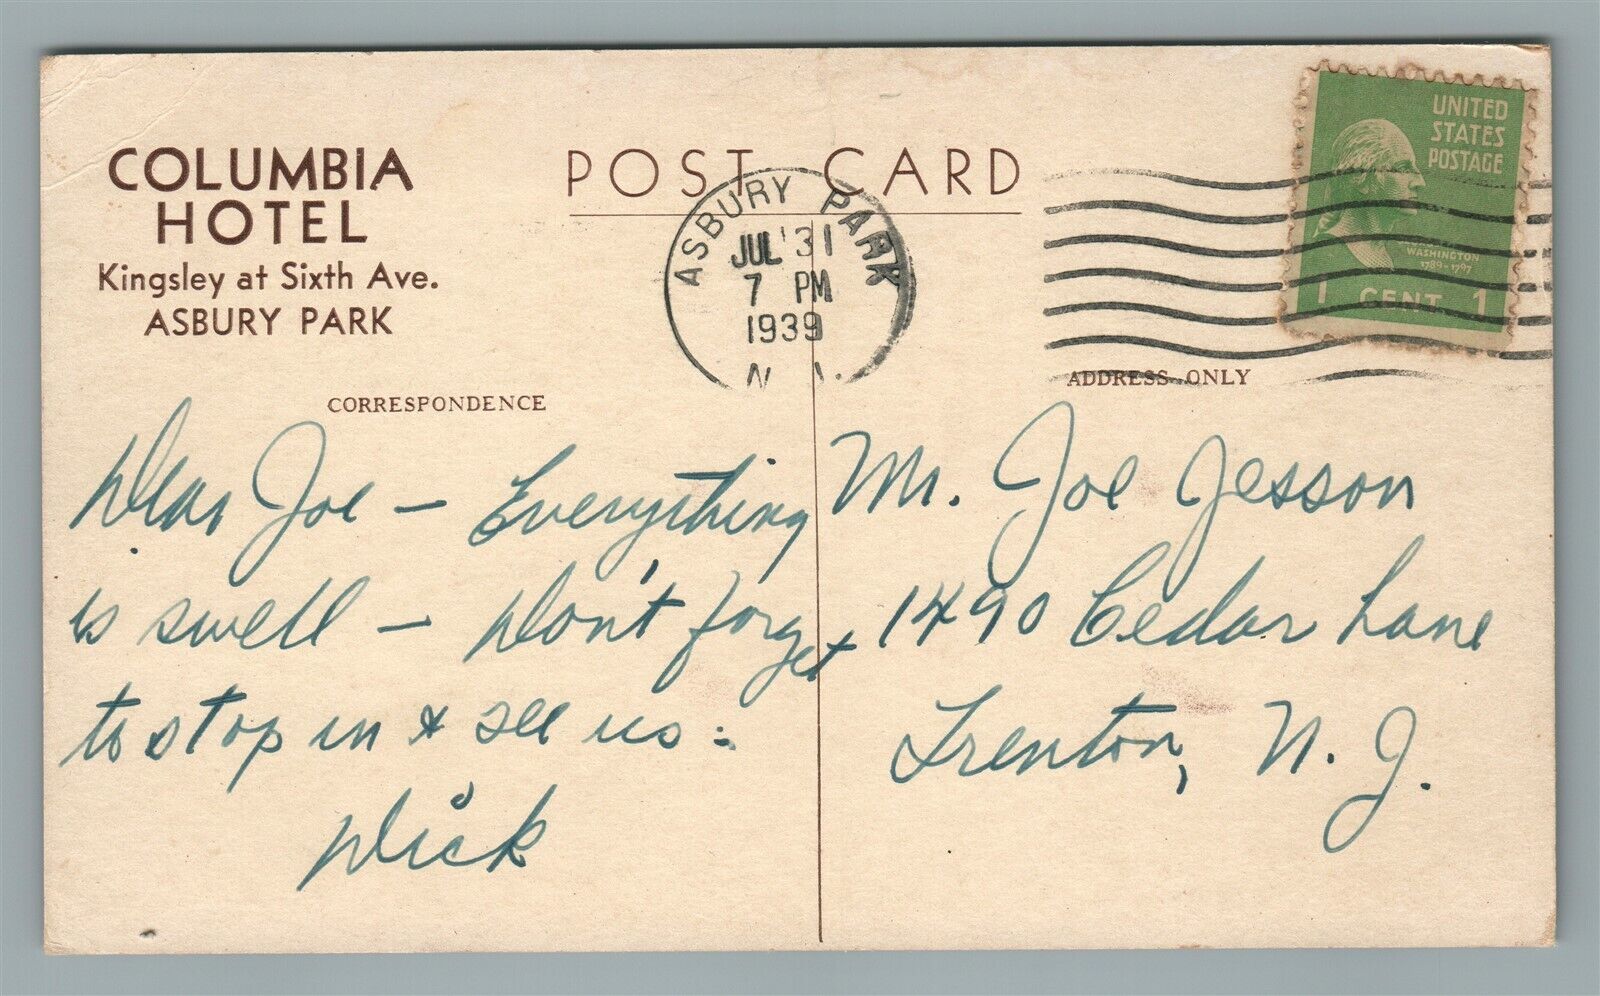 COLUMBIA
HOTEL
Kingsley at Sixth Ave.
ASBURY PARK
POST CARD
ASBURY PARK
JUL 31
7 PM
1939
N. J.
UNITED
STATES
POSTAGE
WASHINGTON
1789-1797
1 CENT 1
CORRESPONDENCE
ADDRESS ONLY
Dear Joe — Everything
is swell — Don't forget
to stop in & see us.
Dick
Mr. Joe Jesson
1490 Cedar Lane
Trenton, N. J.